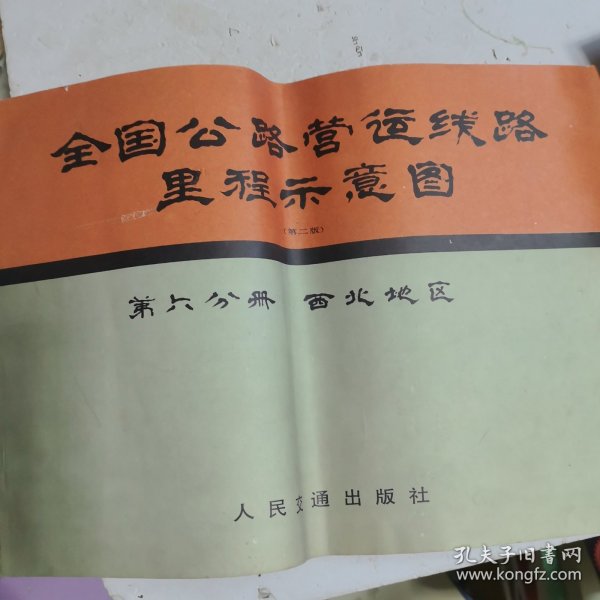 全国公路营运线路
里程示意图
（第二版）
第六分册 西北地区
人民交通出版社
孔夫子旧书网
www.kongfz.com